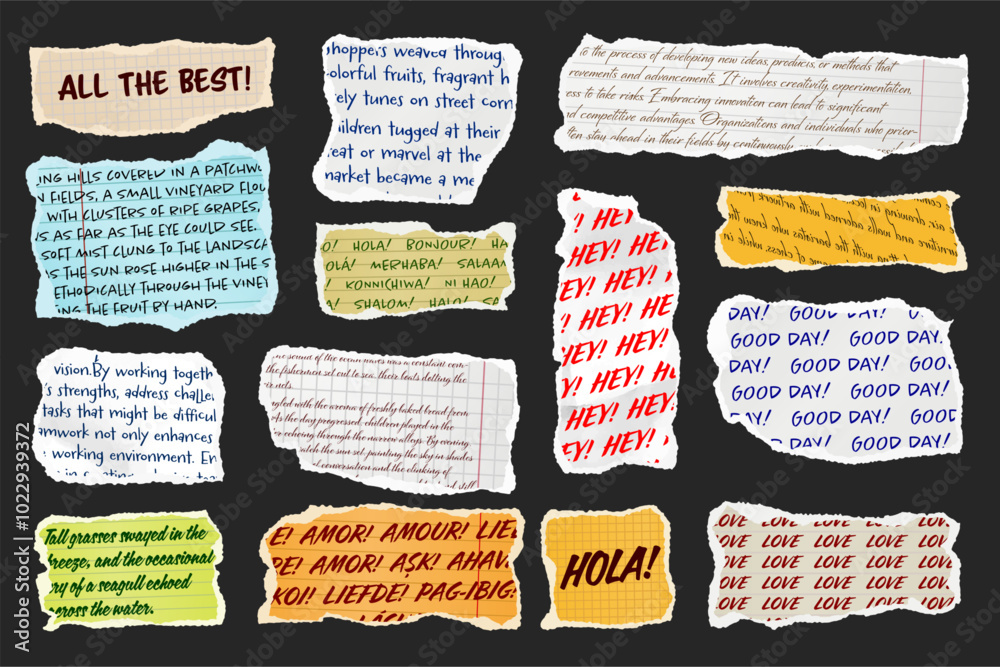 ALL THE BEST!
hoppers weaved throug
olorful fruits, fragrant h
ely tunes on street corn
ildren tugged at their
eat or marvel at the
market became a me
to the process of developing new ideas, products, or methods that
rovements and advancements. It involves creativity, experimentation,
ess to take risks. Embracing innovation can lead to significant
d competitive advantages. Organizations and individuals who prior-
ften stay ahead in their fields by continuously
ING HILLS COVERED IN A PATCHW
N FIELDS, A SMALL VINEYARD FLOU
WITH CLUSTERS OF RIPE GRAPES,
S AS FAR AS THE EYE COULD SEE.
SOFT MIST CLUNG TO THE LANDSCA
S THE SUN ROSE HIGHER IN THE S
ETHODICALLY THROUGH THE VINEY
ING THE FRUIT BY HAND.
O! HOLA! BONJOUR! HA
OLÁ! MERHABA! SALAAM
! KONNICHIWA! NI HAO!
A! SHALOM! HALO! SA
! HEY!
HEY! HEY!
! HEY! HEY
EY! HEY!
! HEY! HEY!
HEY! HEY!
Y! HEY! HE
HEY! HEY!
EY! HEY!
drawing in
walls adorned with artwork
the baristas who knew the
game of chess, while
DAY! GOOD DAY! G
GOOD DAY! GOOD DAY!
DAY! GOOD DAY! GOOD
GOOD DAY! GOOD DAY!
DAY! GOOD DAY! GOOD
DAY! GOOD DAY!
vision.By working togeth
's strengths, address challe
tasks that might be difficul
amwork not only enhances
working environment. En
me sound of the ocean waves was constant com-
the fishermen set out to sea, their boats dotting the
ir nets.
gled with the aroma of freshly baked bread from
As the day progressed, children played in the
r echoing through the narrow alleys. By evening
atch the sun set, painting the sky in shades
conversation and the clinking of
Tall grasses swayed in the
reeze, and the occasional
ry of a seagull echoed
across the water.
E! AMOR! AMOUR! LIE
DE! AMOR! AŞK! AHAV
KOI! LIEFDE! PAG-IBIG!
HOLA!
LOVE LOVE LOVE LOVE LOVE
LOVE LOVE LOVE LOVE LOVE
LOVE LOVE LOVE LOVE LOVE
LOVE LOVE LOVE LOVE LOVE
LOVE LOVE LOVE LOVE LOVE
Adobe Stock | #1022939372